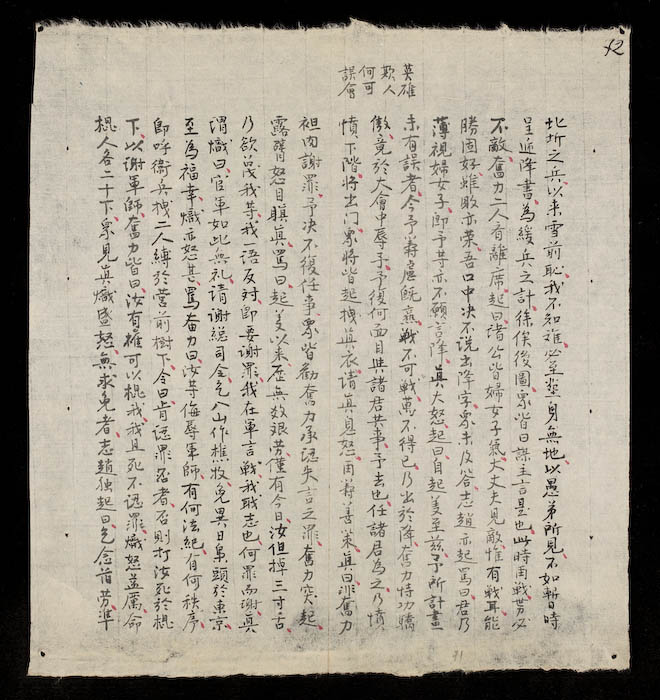 42
英雄
欺人
何可
誤會
北圻之兵以來雪前恥我不知难必至葬身無地以愚弟所見不如暫日時
呈遞降書為緩兵之計徐俟後圖衆皆曰謀主言是也此時再戰势必
不敵奮力二人奋離席起曰諸公皆婦女子氣大丈夫見敵惟有戰耳能
勝固好雖敗亦荣吾口中决不説出降字衆未及答志趙亦起罵曰君乃
薄視婦女子即予等亦不願言降眞大怒起曰自起義至茲予所計畫
未有誤者今予籌慮既熟戰不可戰萬不得已乃出於降奮力恃功驕
傲竟於大會中辱予予復何面目與諸君共事予去也任諸君為之乃憤
憤下階將出门衆將皆起拽眞衣请眞息怒再籌善策眞曰非奮力
袒肉謝罪予决不復任事衆皆勸奮力承認失言之罪奮力突起
露臂怒目瞋眞罵曰起義以來歷無数艱劳僅有今日汝但掉三寸舌
乃欲蔑我等我一语反对即要謝罪我在軍言戰我职志也何罪而謝眞
谓熾曰官軍如此無礼请谢総司令乞入山作樵牧免異日梟頭於東京
至為福幸熾亦怒甚罵奮力曰汝等侮辱軍師有何法紀有何秩序
即呼衛兵拽二人縛於营前樹下令曰肯認罪忍者否則打汝死於棍
下以谢軍師奮力皆曰汝有權可以棍我我且死不認罪熾怒益厲命
棍人各二十下衆見眞熾盛怒無求免者志趙独起曰乞念前劳準
71